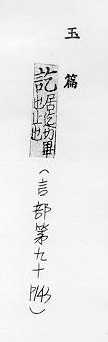 玉篇
訖居迄切畢
也止也
(言部第九十 P143)